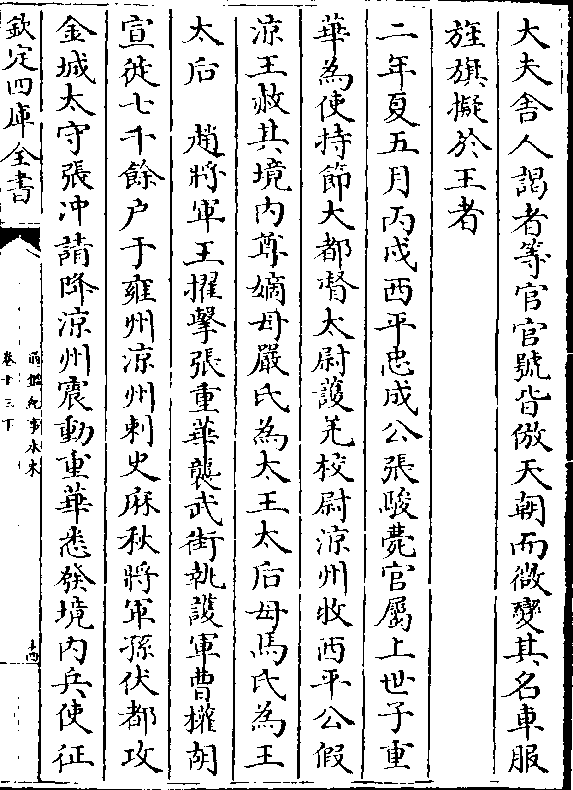 大夫舍人謁者等官官號皆倣天朝而微變其名車服
旌旗擬於王者
二年夏五月丙戌西平忠成公張駿薨官屬上世子重
華為使持節大都督太尉護羌校尉涼州牧西平公假
涼王赦其境内尊嫡母嚴氏為太王太后母馬氏為王
太后　趙將軍王擢擊張重華襲武街執護軍曹權胡
宣徙七千餘户于雍州涼州刺史麻秋將軍孫伏都攻
金城太守張冲請降涼州震動重華悉發境内兵使征
欽定四庫全書
通鑑紀事本末
卷十三下
十四